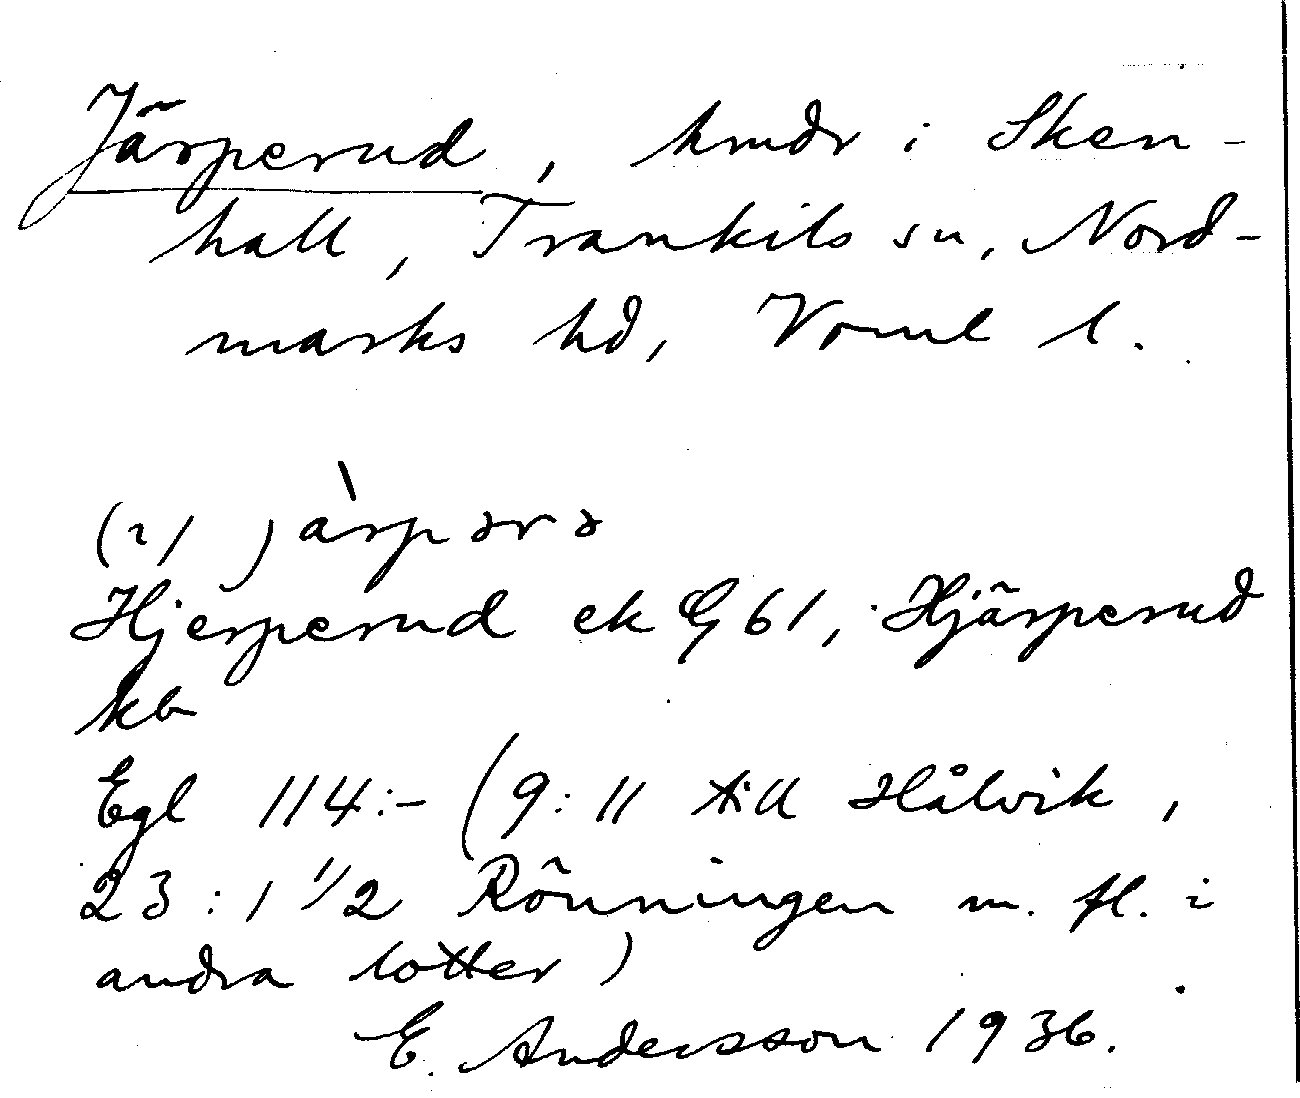 Järperud, hmdr i Sken-
hall, Trankils sn, Nord-
marks hd, Vrml l.
(i) jàrpərə
Hjerperud ek G 61, Hjärperud
kb
Egl 114:- (9:11 till Hålvik,
23:1 1/2 Rönningen m. fl. i
andra lotter)
E. Andersson 1936.